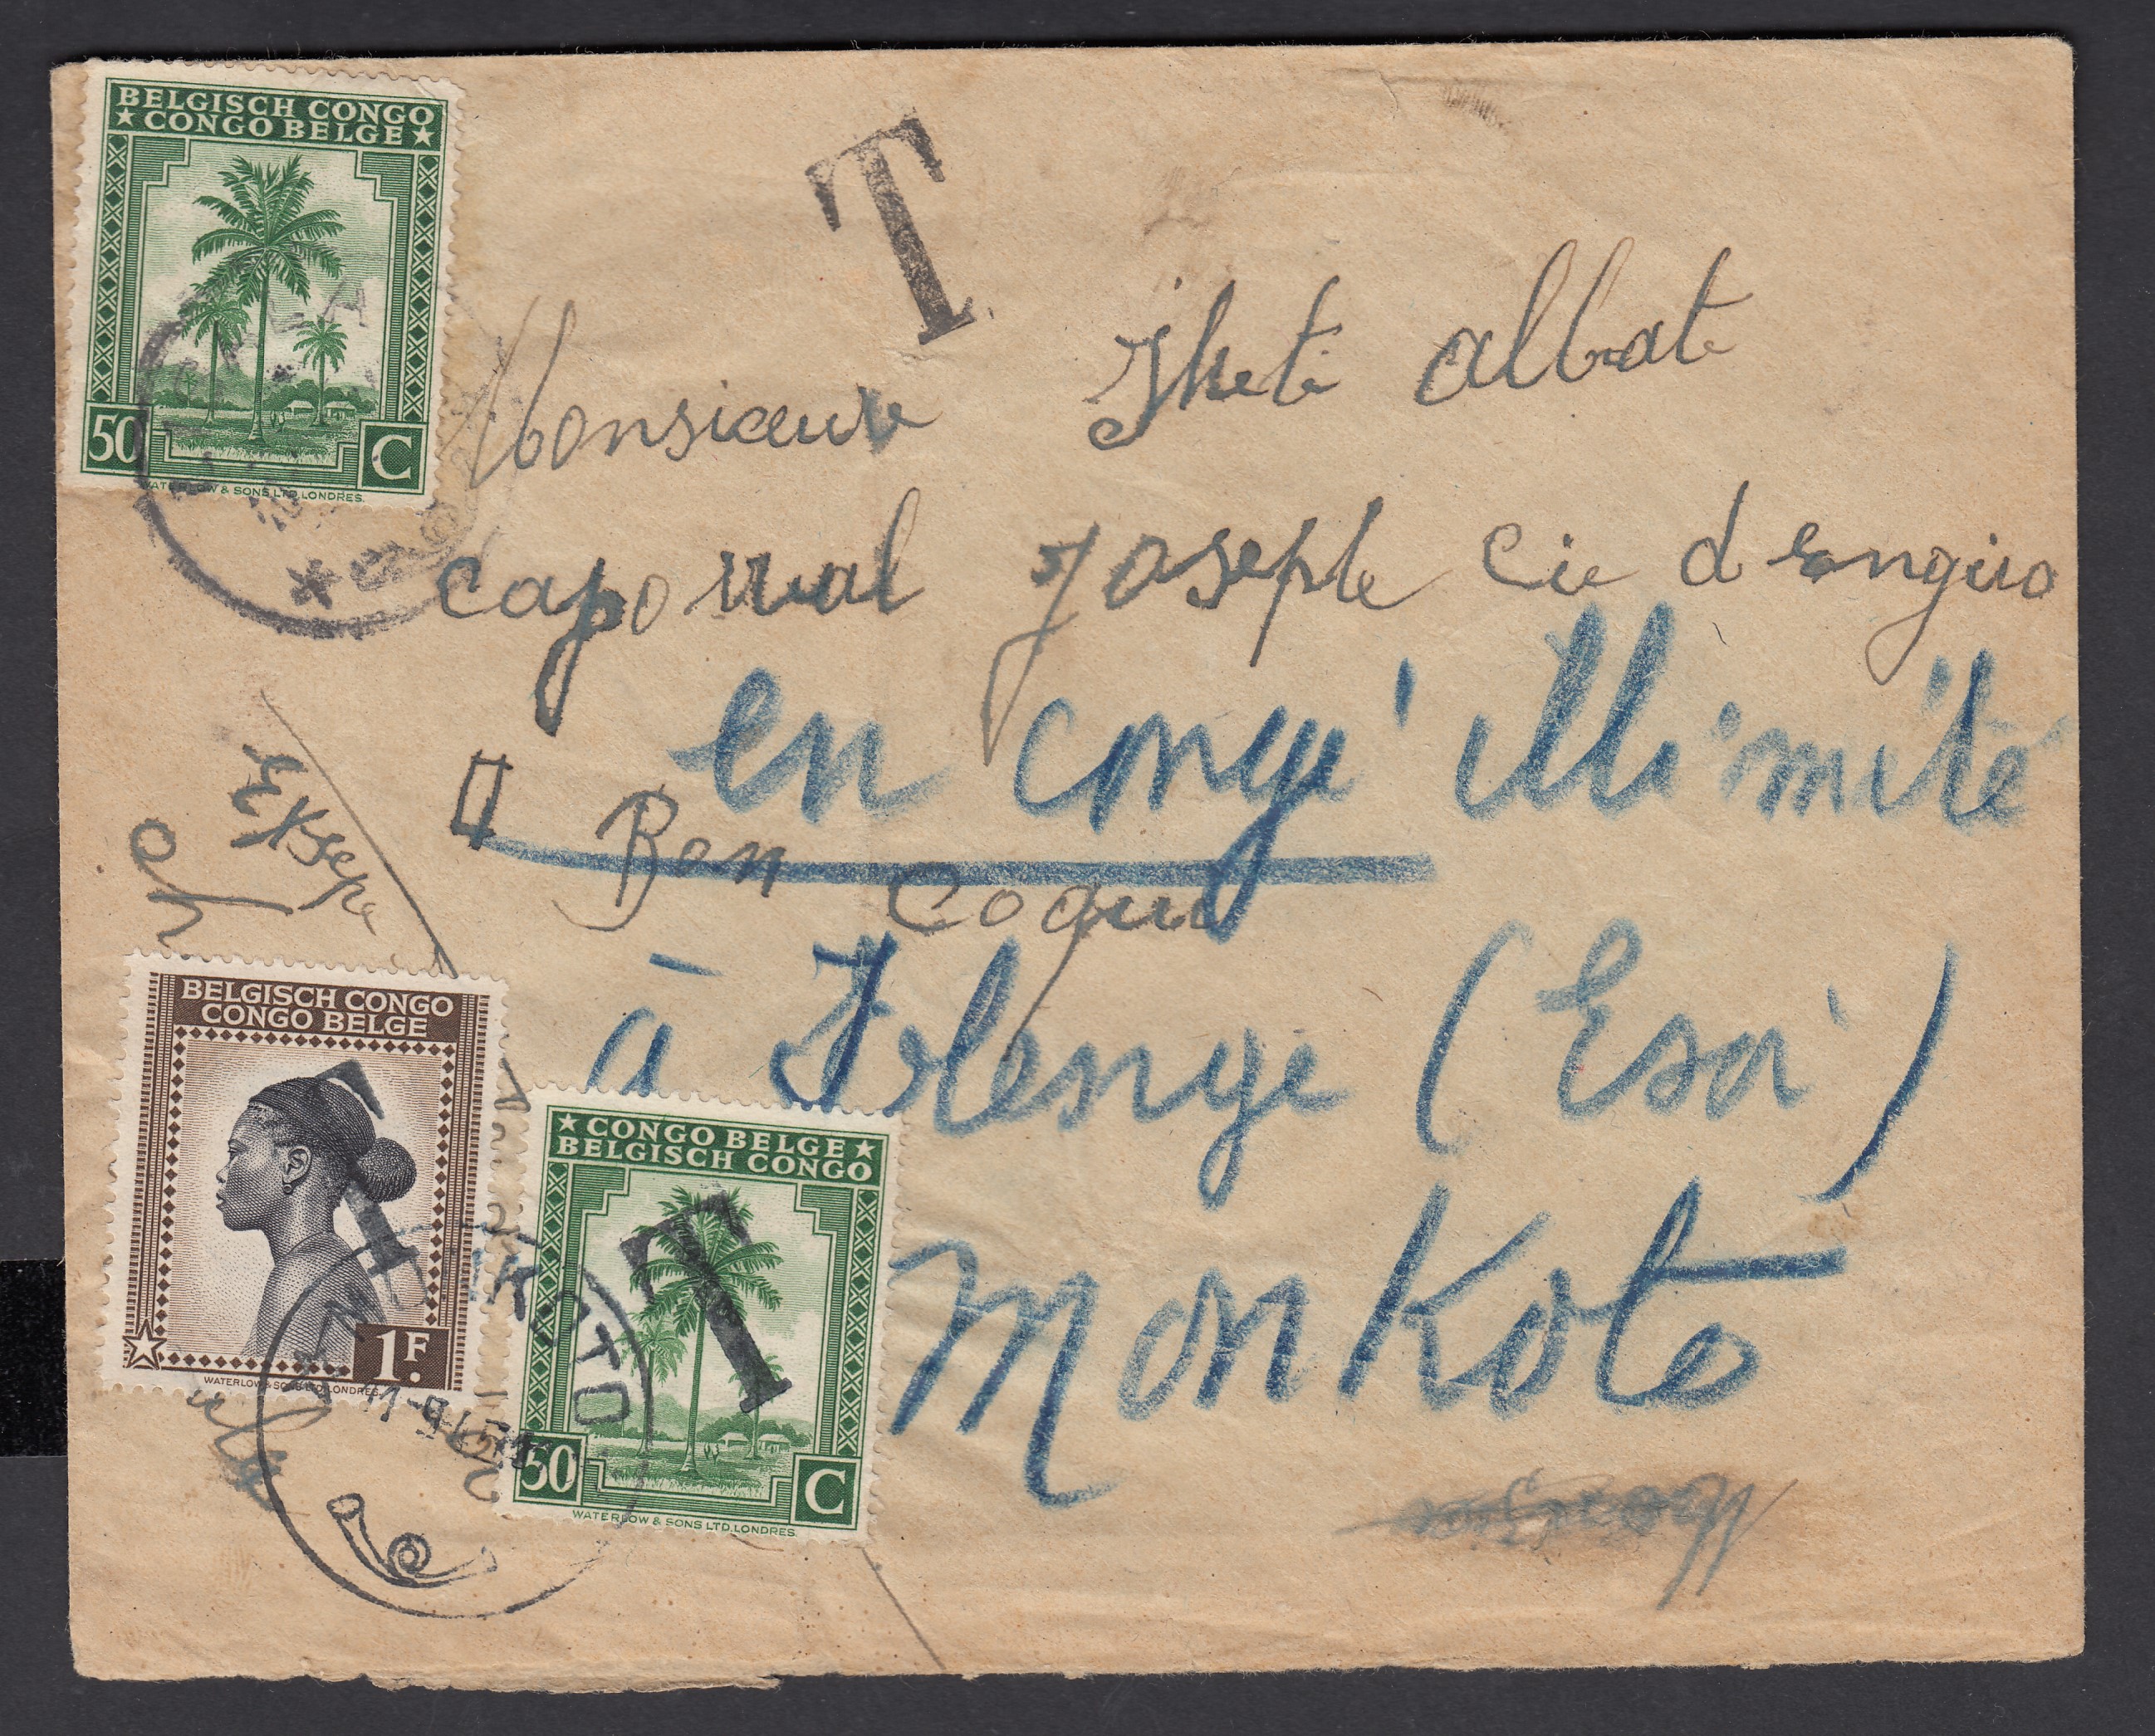 BELGISCH CONGO
★ CONGO BELGE ★
50 C
WATERLOW & SONS LTD. LONDRES.
T
Monsieure Iheti albate
caporual Joseple Cie d engiro
en congé illimité
Bon Coqui
à Ilenge (Esoi)
Monkoto
Eksepe
BELGISCH CONGO
CONGO BELGE
1F.
WATERLOW & SONS LTD. LONDRES.
T
★ CONGO BELGE ★
BELGISCH CONGO
50 C
WATERLOW & SONS LTD. LONDRES.
T
MONKOTO
11-9-45